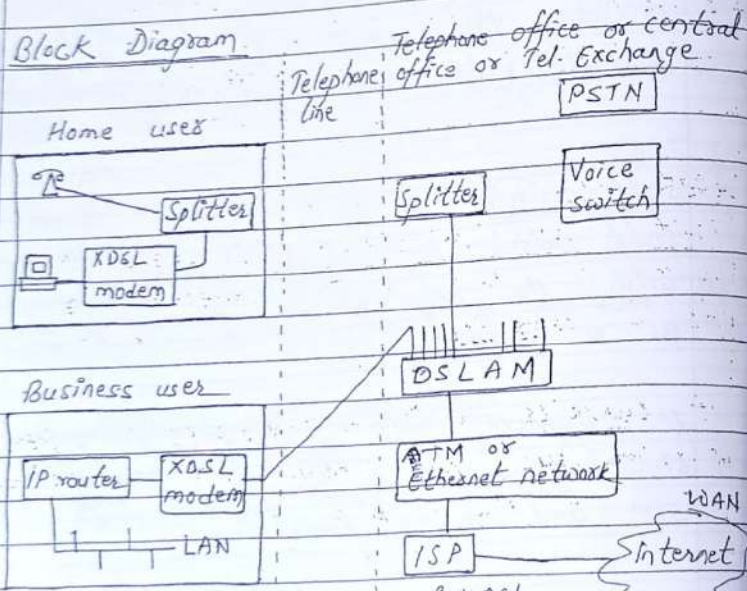 Block Diagram
Telephone office or central
office or Tel. Exchange
Telephone
line
PSTN
Home user
Splitter
Splitter
Voice
switch
XDSL
modem
DSLAM
Business user
IP router
XDSL
modem
ATM or
Ethernet network
LAN
WAN
ISP
Internet